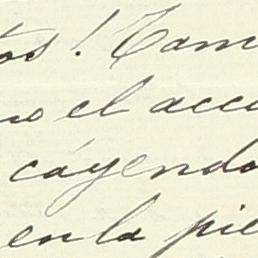 tos! Tam
no el acce
cáyendo
en la pie